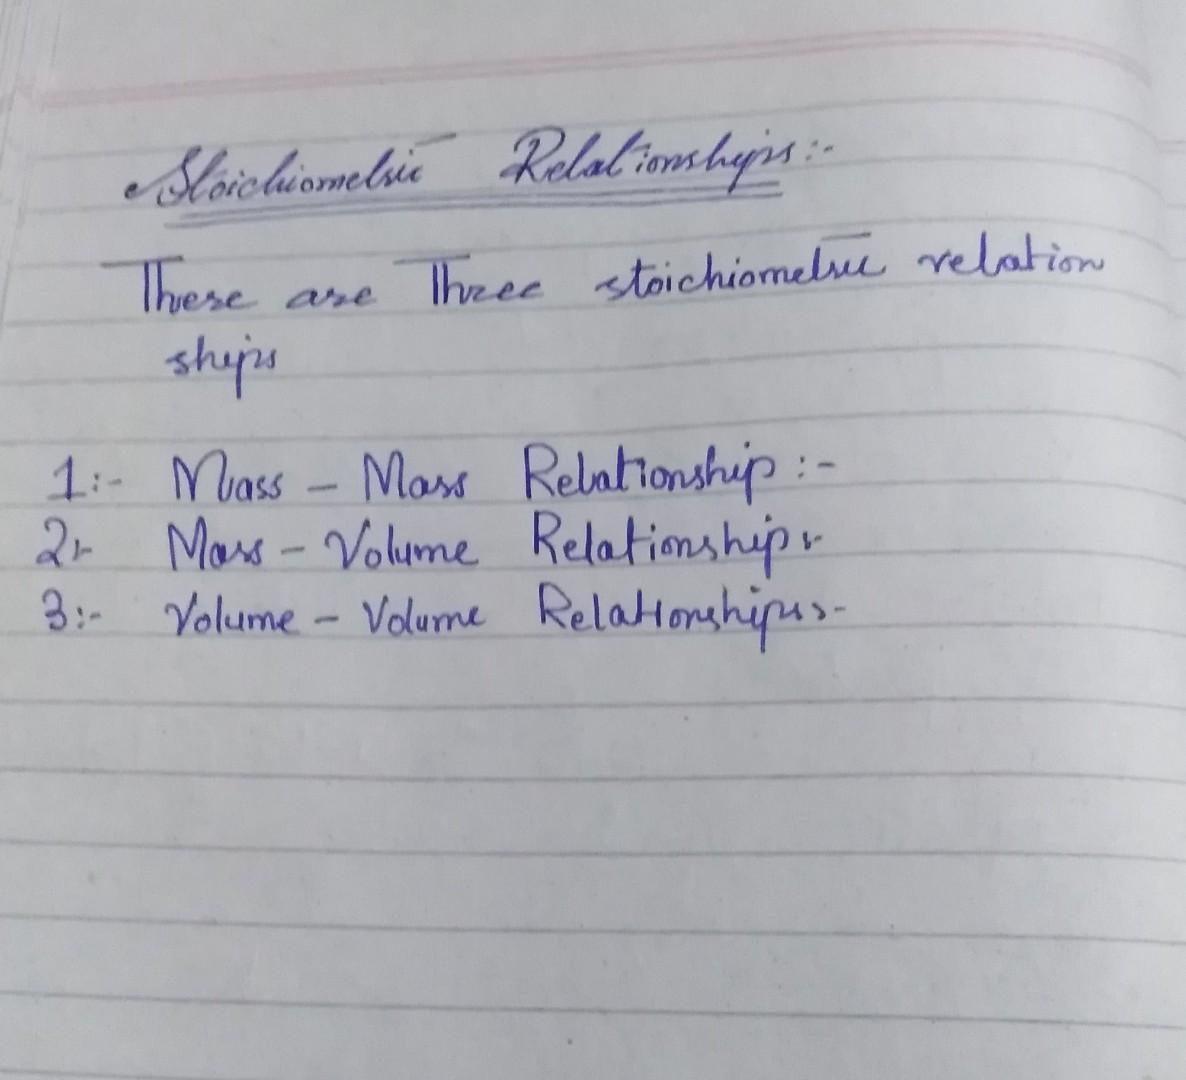 Stoichiometric Relationships:-
There are Three stoichiometric relation
ships
1:- Mass - Mass Relationship:-
2:- Mass - Volume Relationship:-
3:- Volume - Volume Relationships:-